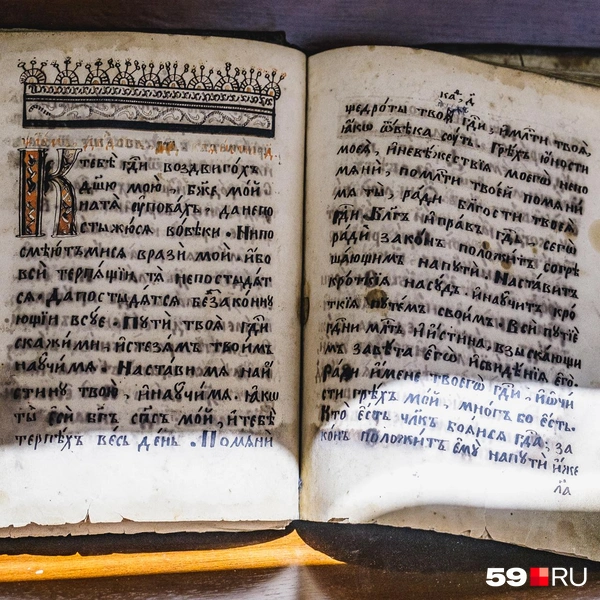 К тебѣ гди воздвигохъ
дшю мою, бже мой
на тѧ ѹповахъ, да не по
стыжюсѧ во вѣки. Ни по
смѣютъмисѧ врази мои, ибо
вси терпѧщіи тѧ не постыдѧт
сѧ. Да постыдѧтсѧ беззаконну
ющіи всуе. Пути твоѧ гди
скажи ми, и стезѧмъ твоимъ
научи мѧ. Настави мѧ на и
стину твою, и научи мѧ. ꙗкѡ
ты еси бгъ спсъ мой, и тебѣ
терпѣхъ весь день. Помѧни
щедроты твоѧ гди, и млти твоѧ,
ꙗкѡ ѿ вѣка сѹть. Грѣхъ юности
моеѧ, и невѣжествіѧ моегѡ непо
мѧни, по млти твоей помѧни
мѧ ты, ради блгости твоеѧ
гди. Блгъ и правъ гдь, сегѡ
ради законъ положитъ согрѣ
шающимъ на пути. Наставитъ
кроткіѧ на судъ, и научитъ кро
ткіѧ путемъ своимъ. Вси путіе
гдни млть и истина, взыскающи
мъ завѣта егѡ и свидѣніѧ егѡ.
Ради имене твоегѡ гди, и ѡчи
сти грѣхъ мой, многъ бо есть.
Кто есть члкъ боѧисѧ гда; за
конъ положитъ ему на пути иже
ла
59 RU